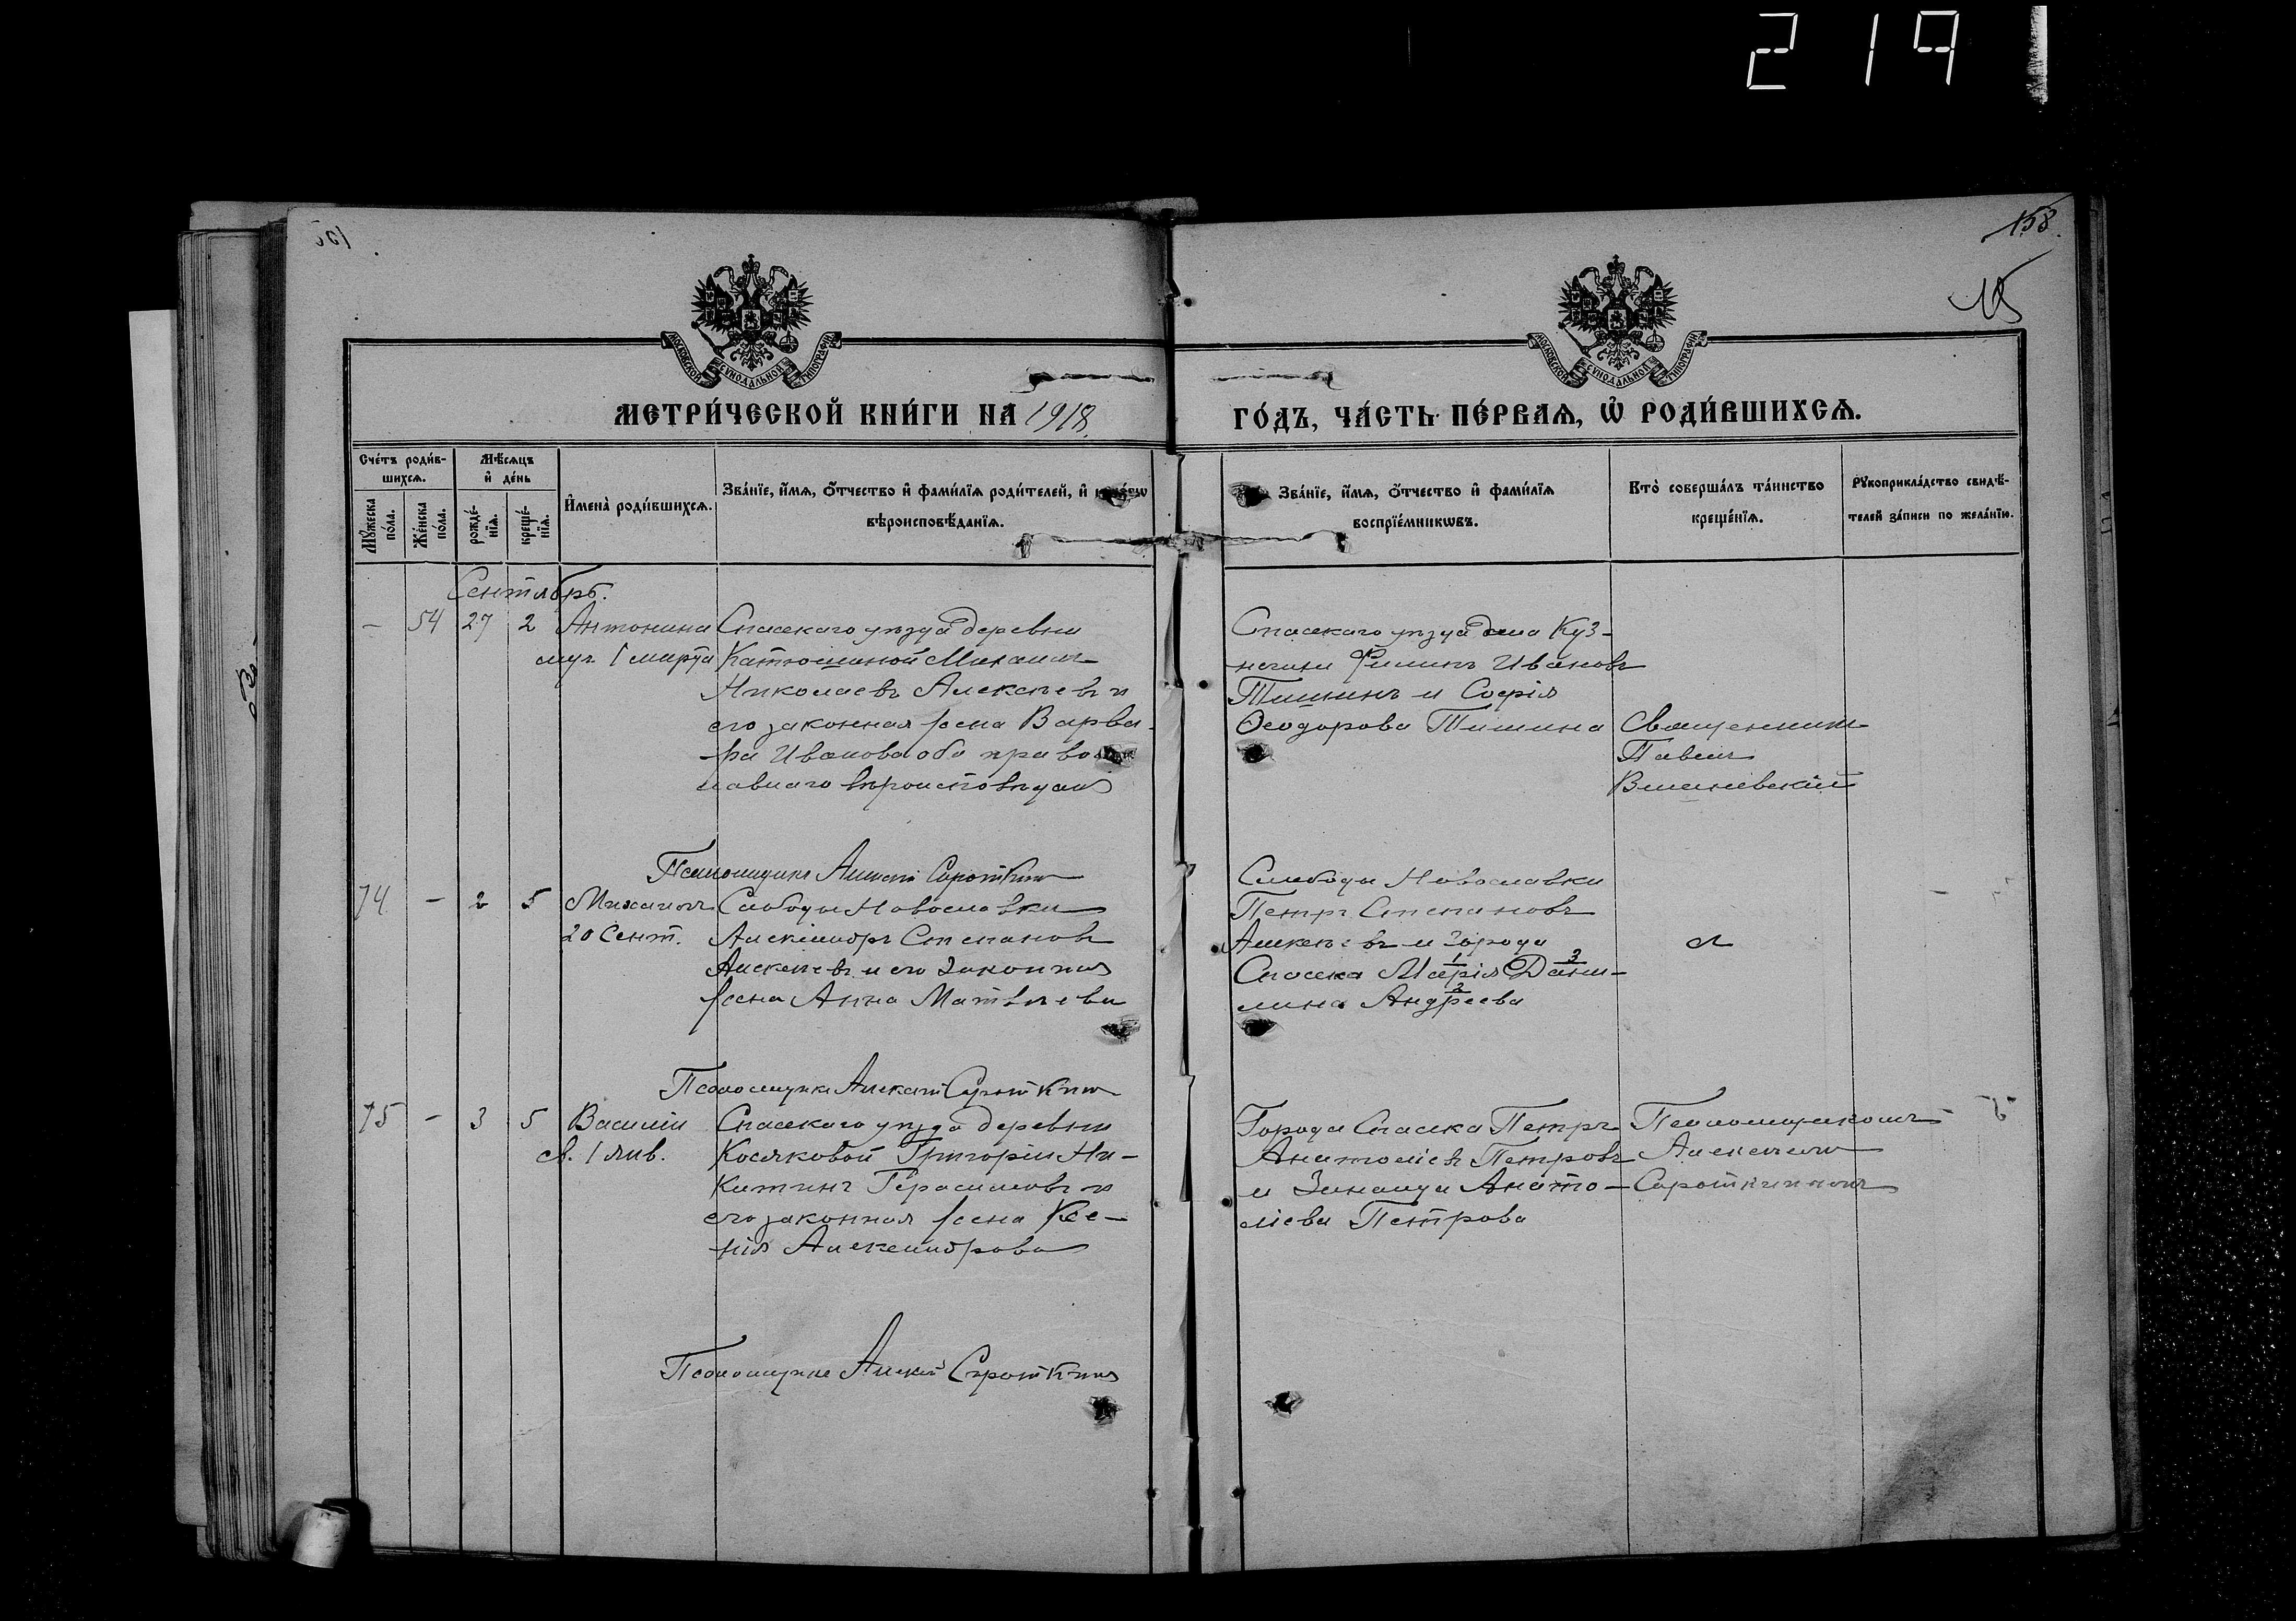 219
158
15
МОСКОВСКОЙ СѴНОДАЛЬНОЙ ТИПОГРАФІИ
МОСКОВСКОЙ СѴНОДАЛЬНОЙ ТИПОГРАФІИ
МЕТРИ́ЧЕСКОЙ КНИ́ГИ НА 1918
ГО́ДЪ, ЧА́СТЬ ПЕ́РВАѦ, Ѡ҆ РОДИ́ВШИХСѦ.
Сче́тъ роди́в-
шихсѧ.
Мѣ́сѧцъ
и҆ де́нь
Мꙋ́жеска по́ла.
Же́нска по́ла.
рожде́-
нїѧ.
креще́-
нїѧ.
И҆мена̀ роди́вшихсѧ.
Зва́нїе, и҆́мѧ, ѻ҆́тчество и҆ фами́лїѧ роди́телей, и҆
вѣроисповѣ́данїѧ.
Зва́нїе, и҆́мѧ, ѻ҆́тчество и҆ фами́лїѧ
воспрїе́мникѡвъ.
Кто̀ соверша́лъ та́инство
креще́нїѧ.
Рꙋкоприкла́дство свидѣ́-
телей за́писи по жела́нїю.
Сентябрь.
– 54 27 2 Антонина
муч. 1 марта
Спасскаго уѣзда деревни
Катюшиной Михаилъ
Николаевъ Алексѣевъ и
его законная жена Варва-
ра Иванова оба право
славнаго вѣроисповѣдан
Спасскаго уѣзда села Куз-
нечихи Филиппъ Ивановъ
Тишинъ и Софія
Ѳеодорова Тишина
Священникъ
Павелъ
Вишневскій
Псаломщикъ Алексѣй Сироткинъ
74 – 2 5 Михаилъ
20 Сент.
Слободы Новославки
Александръ Степановъ
Алексѣевъ и его законная
жена Анна Матвѣева
Слободы Новославки
Петръ Степановъ
Алексѣевъ и города
Спасска Марія Дани-
лина Андреева
1 3
2
Псаломщикъ Алексѣй Сироткинъ
75 – 3 5 Василій
св. 1 янв.
Спасскаго уѣзда деревни
Косяковой Григорій Ни-
китинъ Герасимовъ и
его законная жена Ксе-
нія Александрова
Города Спасска Петръ
Анатоліевъ Петровъ
и Зинаида Анато-
ліева Петрова
Псаломщикомъ
Алексѣемъ
Сироткинымъ
Псаломщикъ Алексѣй Сироткинъ